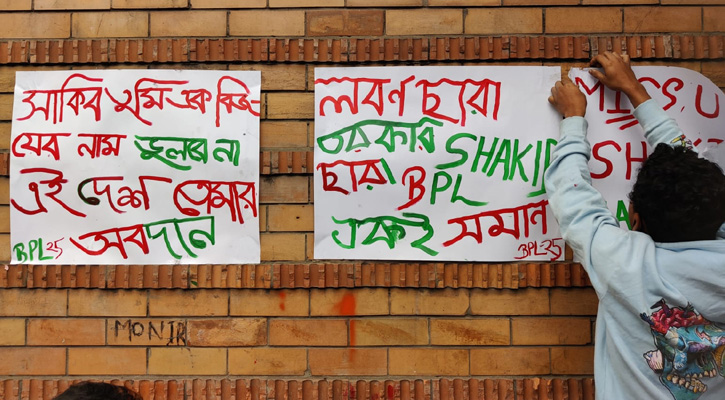 সাকিব তুমি এক বিজ-
য়ের নাম ভুলবে না
এই দেশ তোমার
অবদান
BPL-25
লবণ ছারা
তরকারি SHAKIB
ছারা BPL
একই সমান
BPL-25
MISS U
SH
MONIR